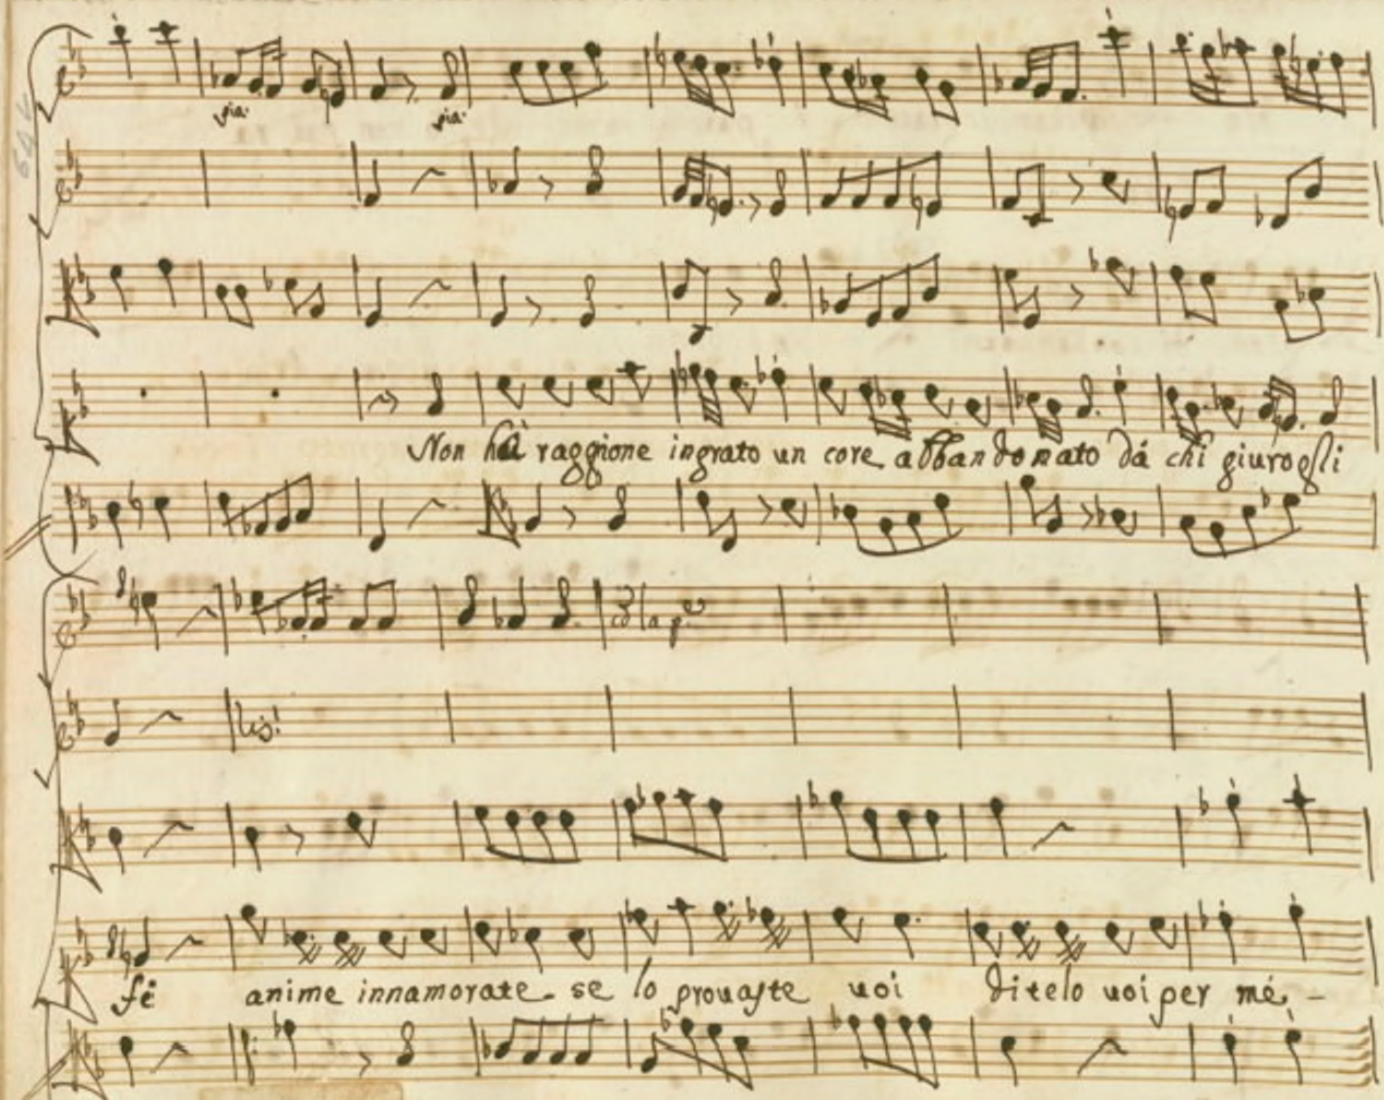 pia: pia:
Non hà raggione ingrato un core abbandonato dá chi giurogli
cola p.e
Unis:
fè anime innamorate se lo prouaste uoi ditelo uoi per mé